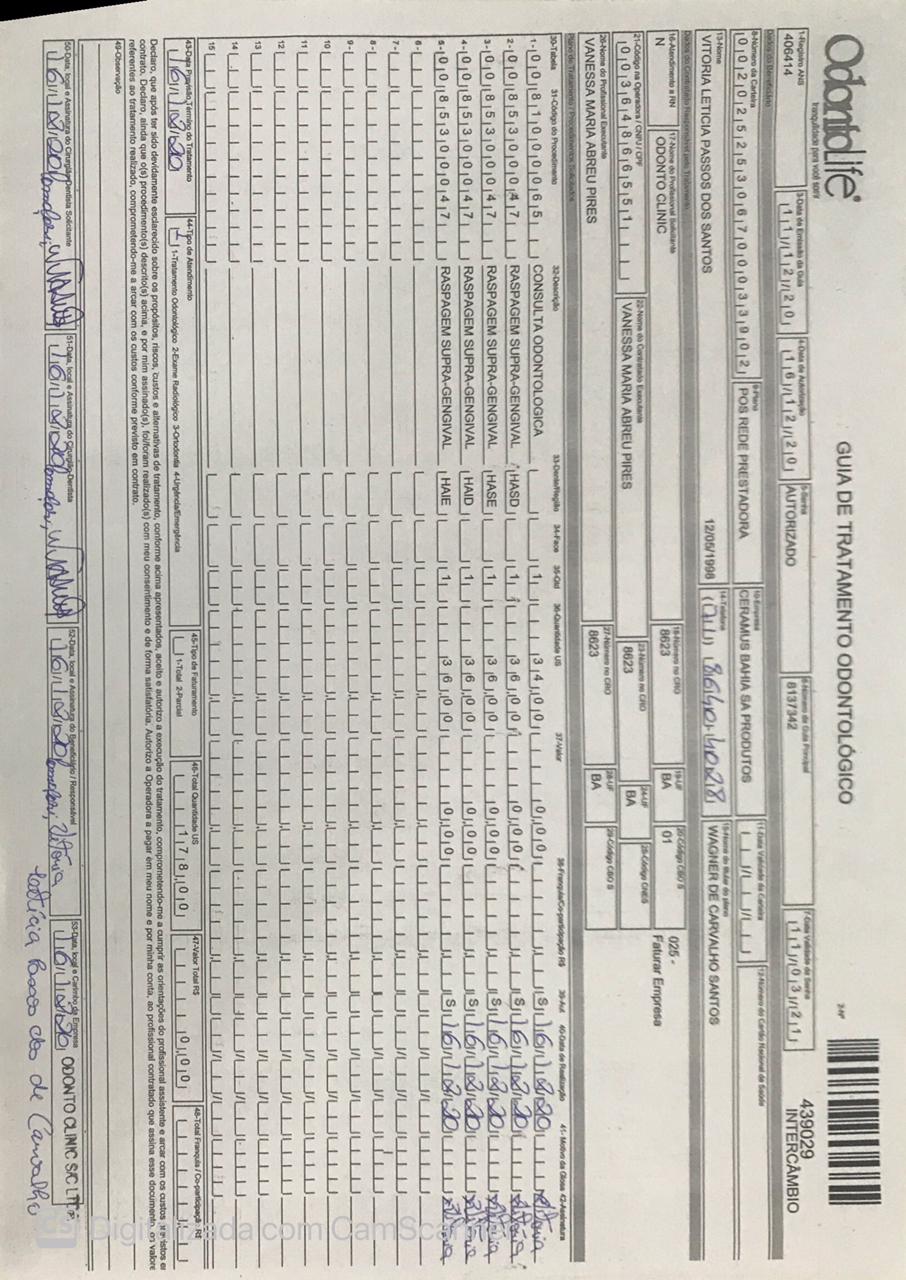 OdontoLife®
tranquilidade para você sorrir
GUIA DE TRATAMENTO ODONTOLÓGICO
2-Nº
439029
INTERCÂMBIO
1-Registro ANS
406414
3-Data de Emissão da Guia
11/12/20
4-Data de Autorização
16/12/20
5-Senha
AUTORIZADO
6-Número da Guia Principal
8137342
7-Data Validade da Senha
11/03/21
Dados do Beneficiário
8-Número da Carteira
00202525306700033902
9-Plano
POS REDE PRESTADORA
10-Empresa
CERAMUS BAHIA SA PRODUTOS
11-Data Validade da Carteira
12-Número do Cartão Nacional de Saúde
13-Nome
VITORIA LETICIA PASSOS DOS SANTOS
12/05/1998
14-Telefone
15-Nome do titular do plano
WAGNER DE CARVALHO SANTOS
Dados do Contratado Responsável pelo Tratamento
16-Atendimento a RN
N
17-Nome do Profissional Solicitante
ODONTO CLINIC
18-Número no CRO
8623
19-UF
BA
20-Código CBO S
01
025 -
Faturar Empresa
21-Código na Operadora / CNPJ / CPF
00364866551
22-Nome do Contratado Executante
VANESSA MARIA ABREU PIRES
23-Número no CRO
8623
24-UF
BA
25-Código CNES
26-Nome do Profissional Executante
VANESSA MARIA ABREU PIRES
27-Número no CRO
8623
28-UF
BA
29-Código CBO S
Plano de Tratamento / Procedimentos Solicitados
30-Tabela 31-Código do Procedimento 32-Descrição 33-Dente/Região 34-Face 35-Qtd 36-Quantidade US 37-Valor 38-Franquia/Co-participação R$ 39-Aut 40-Data de Realização 41- Motivo da Glosa 42-Assinatura
1- 00 81000065 CONSULTA ODONTOLOGICA 1 34,00 0,00 S 16/12/20 Vitória
2- 00 85300047 RASPAGEM SUPRA-GENGIVAL HASD 1 36,00 0,00 S 16/12/20 Vitória
3- 00 85300047 RASPAGEM SUPRA-GENGIVAL HASE 1 36,00 0,00 S 16/12/20 Vitória
4- 00 85300047 RASPAGEM SUPRA-GENGIVAL HAID 1 36,00 0,00 S 16/12/20 Vitória
5- 00 85300047 RASPAGEM SUPRA-GENGIVAL HAIE 1 36,00 0,00 S 16/12/20 Vitória
6-
7-
8-
9-
10
11
12
13
14
15
43-Data Previsão Término do Tratamento
16/12/20
44-Tipo de Atendimento
1-Tratamento Odontológico 2-Exame Radiológico 3-Ortodontia 4-Urgência/Emergência
45-Tipo de Faturamento
1-Total 2-Parcial
46-Total Quantidade US
178,00
47-Valor Total R$
0,00
48-Total Franquia / Co-participação R$
Declaro, que após ter sido devidamente esclarecido sobre os propósitos, riscos, custos e alternativas de tratamento, conforme acima apresentados, aceito e autorizo a execução do tratamento, comprometendo-me a cumprir as orientações do profissional assistente e arcar com os custos previstos em
contrato. Declaro, ainda que o(s) procedimento(s) descrito(s) acima, e por mim assinado(s), foi/foram realizado(s) com meu consentimento e de forma satisfatória. Autorizo a Operadora a pagar em meu nome e por minha conta, ao profissional contratado que assina esse documento, os valores
referentes ao tratamento realizado, comprometendo-me a arcar com os custos conforme previsto em contrato.
49-Observação
50-Data, local e Assinatura do Cirurgião-Dentista Solicitante
16/12/20
51-Data, local e Assinatura do Cirurgião-Dentista
16/12/20
52-Data, local e Assinatura do Beneficiário / Responsável
16/12/20 Vitória
Letícia Passos dos de Carvalho
53-Data, local e Carimbo da Empresa
16/12/20 ODONTO CLINIC S/C LT
Digitalizada com CamScanner